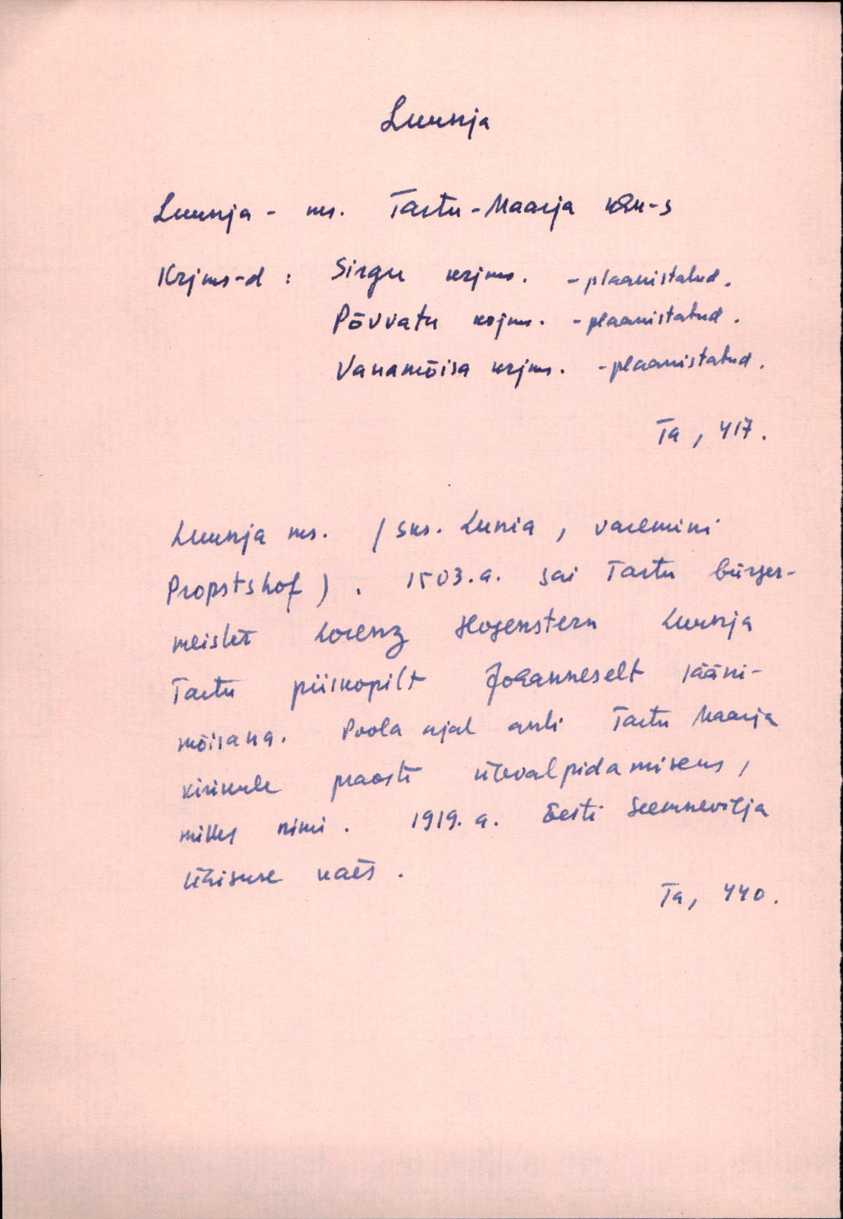 Luunja
Luunja - ms. Tartu-Maarja khk-s
Krjms-d : Sirgu krjms. - plaanistatud.
Põvvatu krjms. - plaanistatud.
Vanamõisa krjms. - plaanistatud.
Ta, 417.
Luunja ms. (sks. Lunia, varemini
Propstshof). 1503.a. sai Tartu bürger-
meister Lorenz Hogenstern Luunja
Tartu piiskopilt Johanneselt lääni-
mõisana. Poola ajal anti Tartu Maarja
kirikule praosti ülevalpidamiseks,
millest nimi. 1919.a. Eesti Seemnevilja
Ühisuse käes.
Ta, 440.